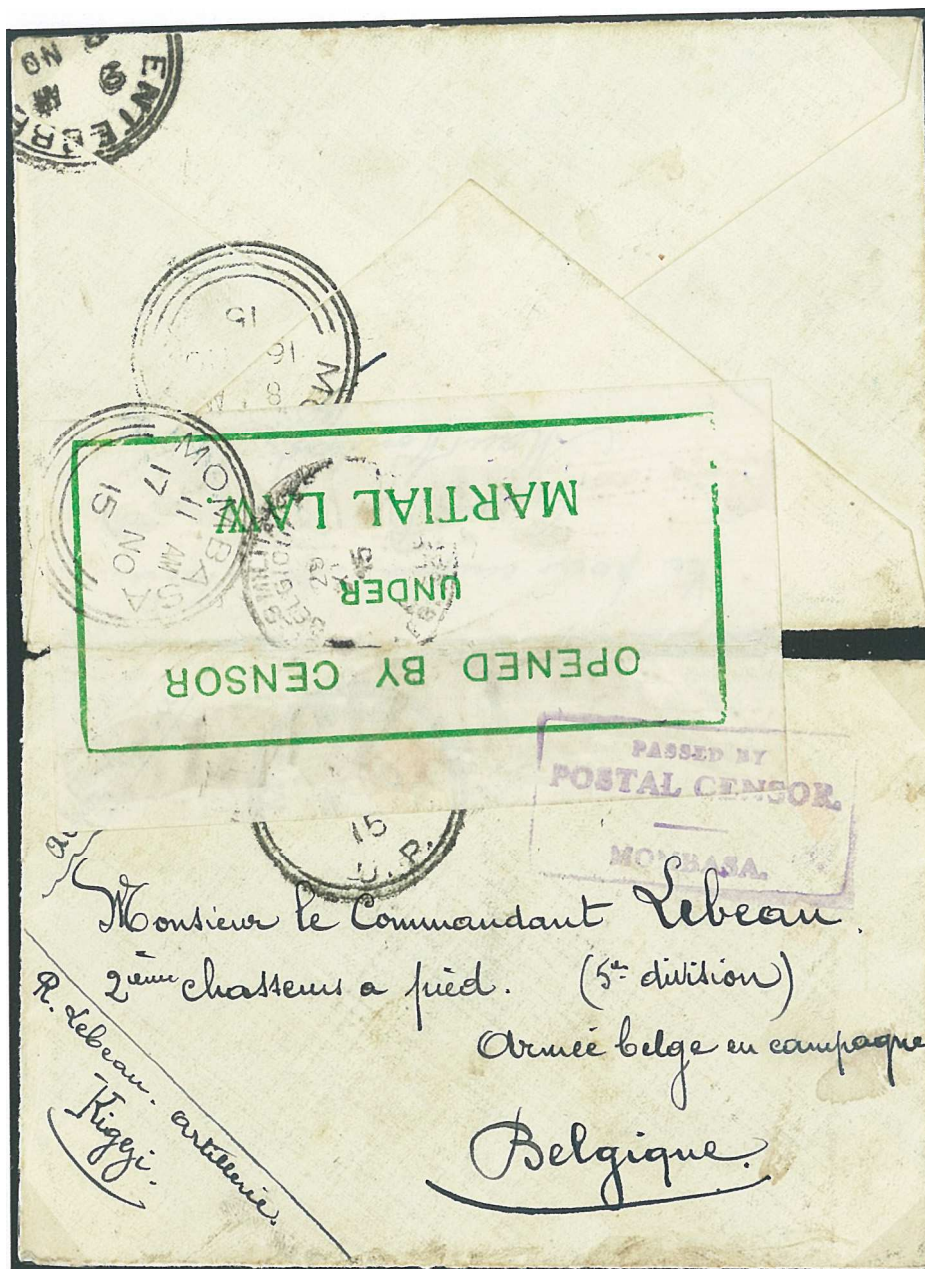 ENTEBB
NO
MO
8
16
15
MOMBASA
11 AM
17 NO
15
OPENED BY CENSOR
UNDER
MARTIAL LAW
BELGI
29
XI
15
PASSED BY
POSTAL CENSOR.
MOMBASA.
15
U.P.
Monsieur le Commandant Lebeau.
2ième chasseurs a pied. (5e division)
Armée belge en campagne
Belgique.
R. Lebeau. artillerie.
Kigezi.